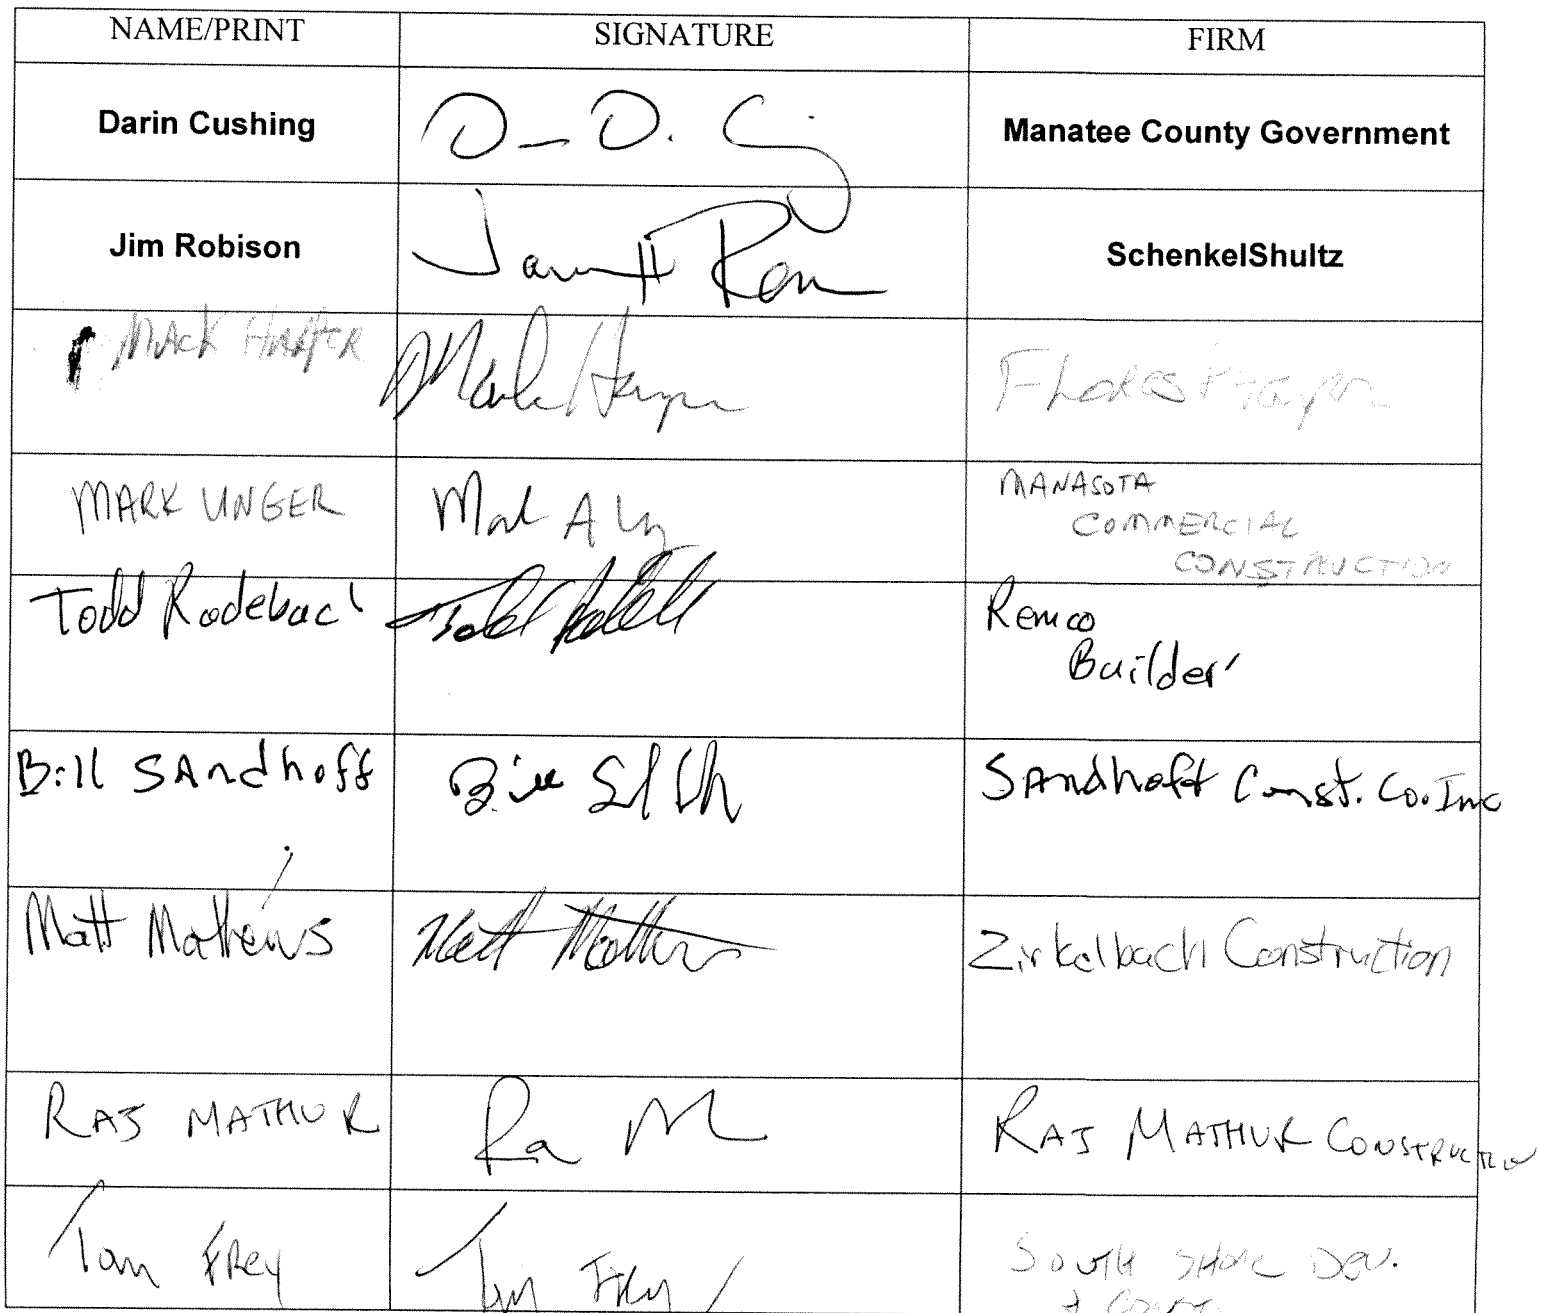 NAME/PRINT SIGNATURE FIRM
Darin Cushing D— D. C Manatee County Government
Jim Robison SchenkelShultz
MACK HARPER Mack Harper FLORES & Harper
MARK UNGER Mark A MANASOTA
COMMERCIAL
CONSTRUCTION
Todd Rodebac Todd Remco
Builder
Bill SAndhoff Bill SAndhoff Const. Co. Inc
Matt Mathews Matt Mathews Zirkelbach Construction
RAJ MATHUR Ra M RAJ MATHUR CONSTRUCTION
Tom FREY Tom FREY SOUTH SHORE DEV.